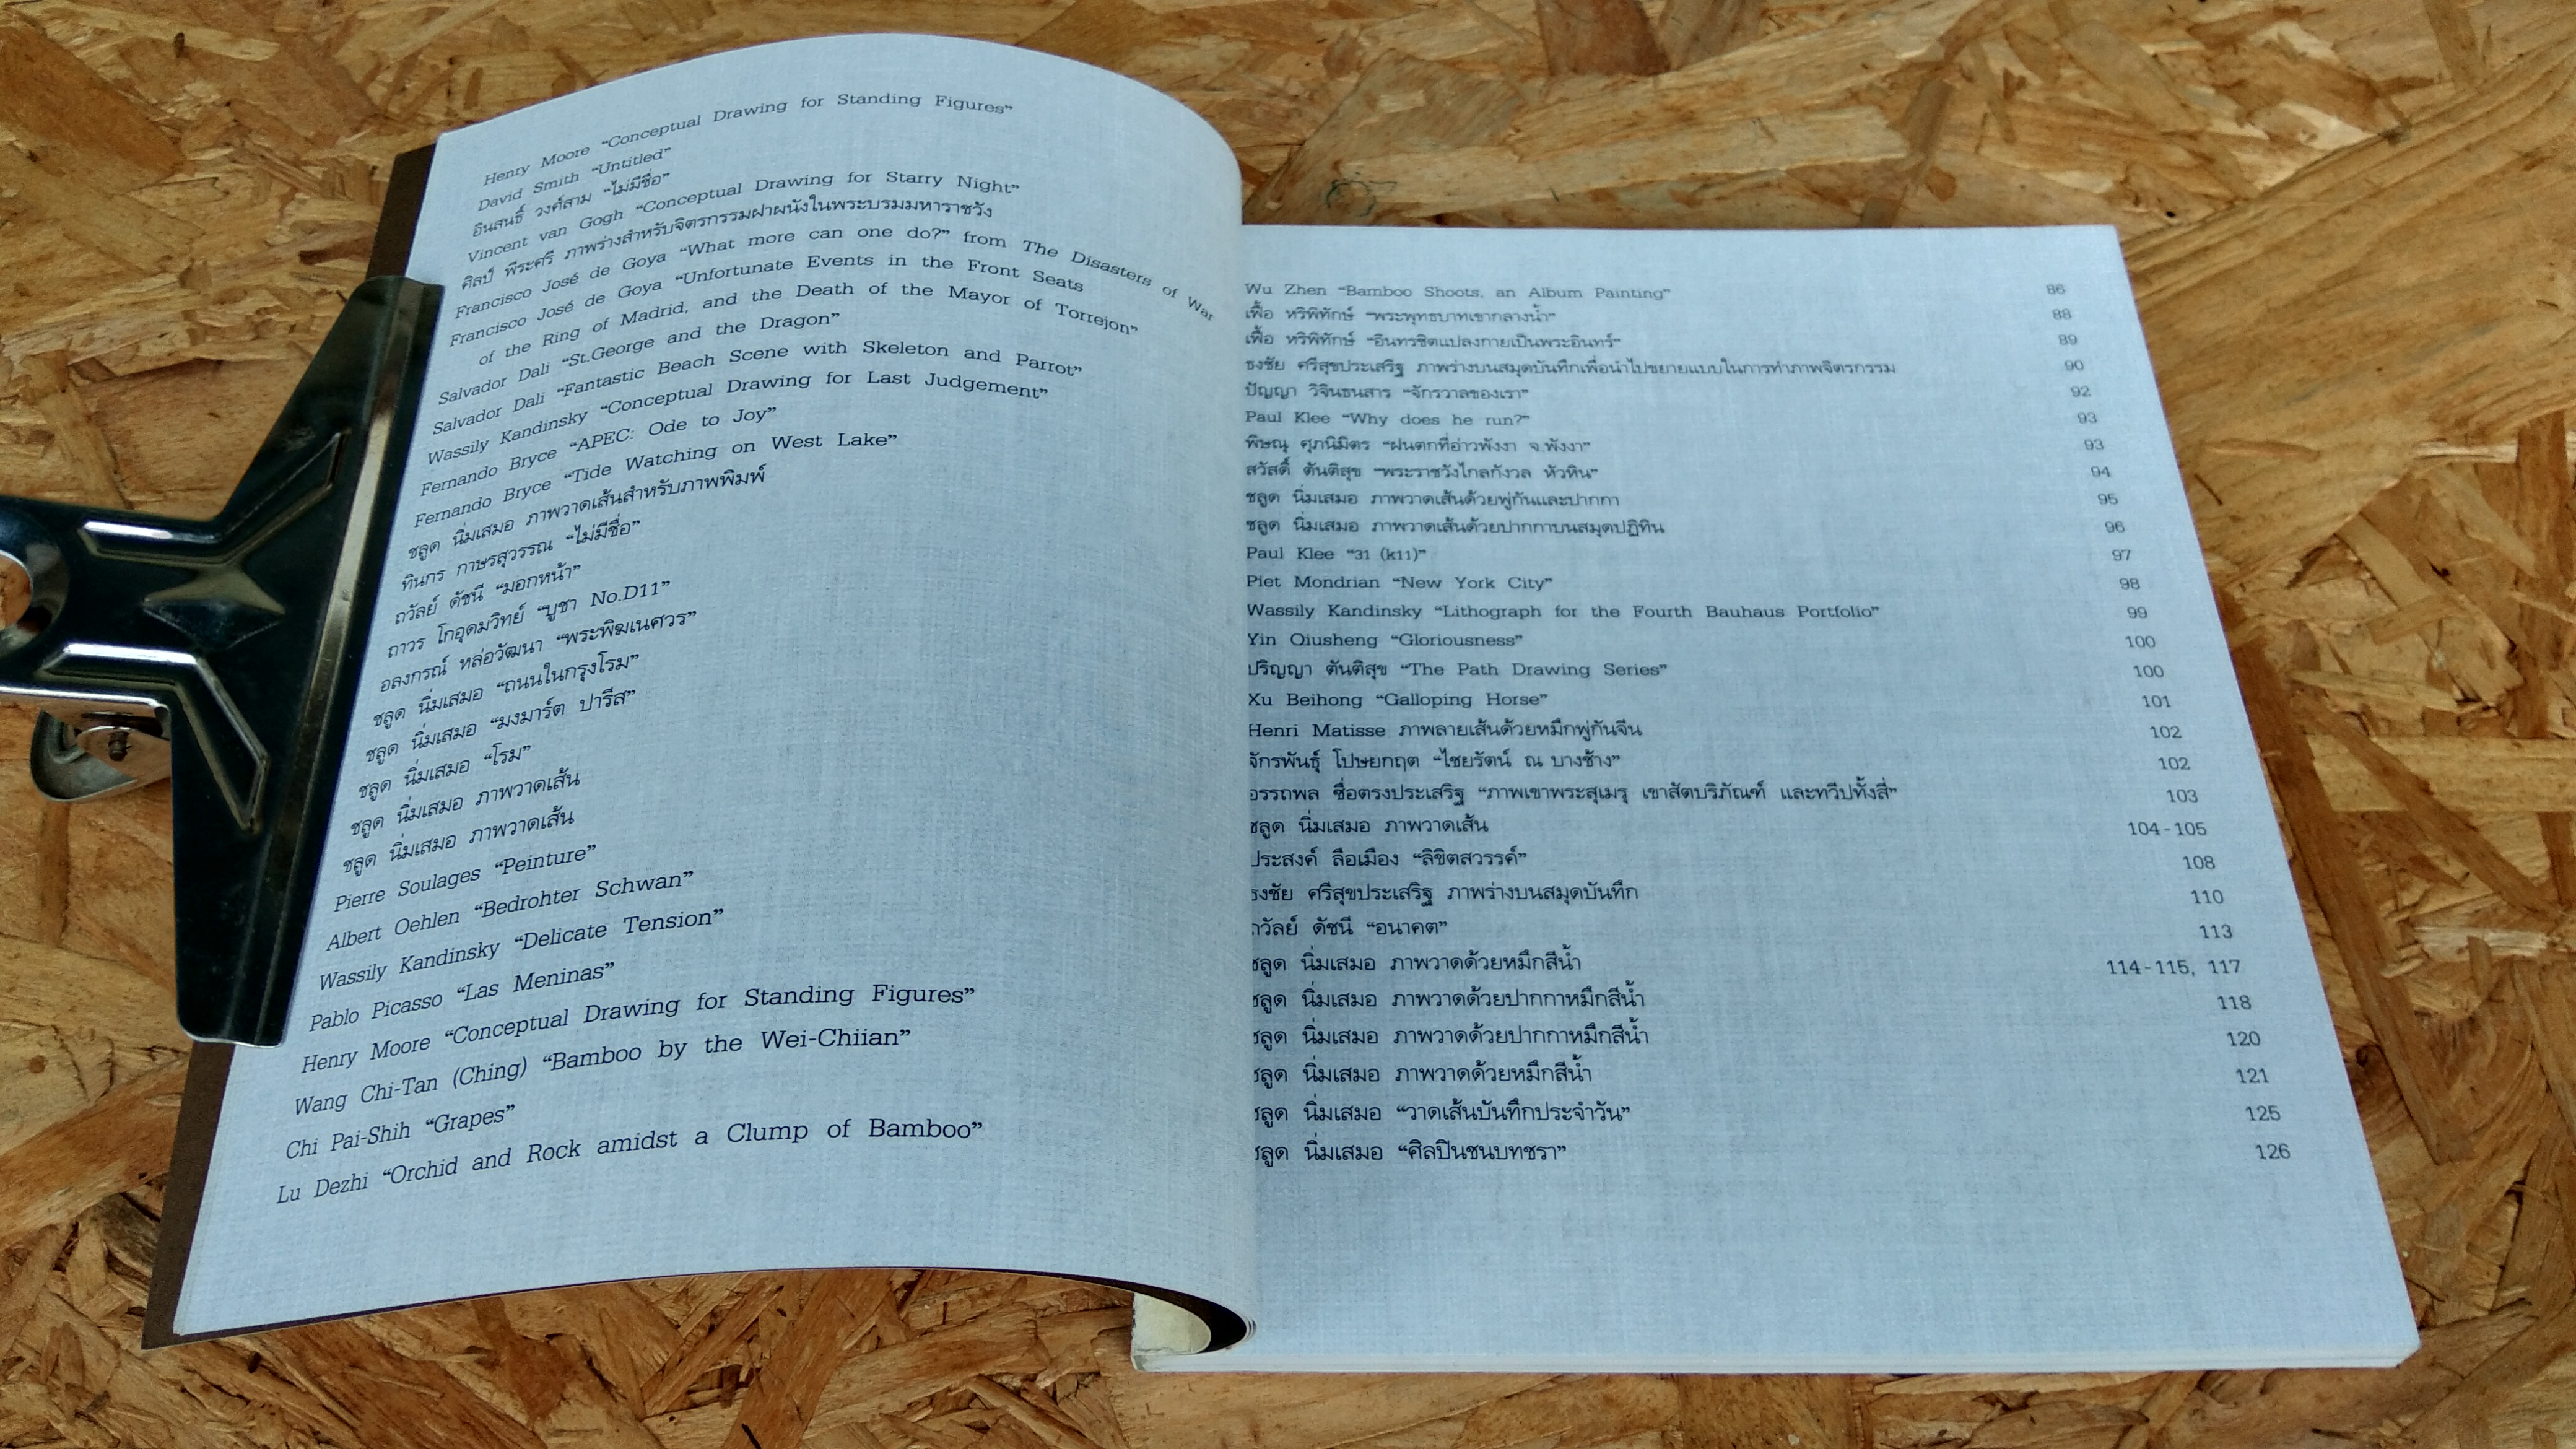 Henry Moore “Conceptual Drawing for Standing Figures”
David Smith “Untitled”
อินสนธิ์ วงศ์สาม “ไม่มีชื่อ”
Vincent van Gogh “Conceptual Drawing for Starry Night”
ศิลป์ พีระศรี ภาพร่างสำหรับจิตรกรรมฝาผนังในพระบรมมหาราชวัง
Francisco José de Goya “What more can one do?” from The Disasters of War
Francisco José de Goya “Unfortunate Events in the Front Seats
of the Ring of Madrid, and the Death of the Mayor of Torrejon”
Salvador Dali “St.George and the Dragon”
Salvador Dali “Fantastic Beach Scene with Skeleton and Parrot”
Wassily Kandinsky “Conceptual Drawing for Last Judgement”
Fernando Bryce “APEC: Ode to Joy”
Fernando Bryce “Tide Watching on West Lake”
ชลูด นิ่มเสมอ ภาพวาดเส้นสำหรับภาพพิมพ์
ทินกร กาษรสุวรรณ “ไม่มีชื่อ”
ถวัลย์ ดัชนี “มอกหน้า”
ถาวร โกอุดมวิทย์ “บูชา No.D11”
อลงกรณ์ หล่อวัฒนา “พระพิฆเนศวร”
ชลูด นิ่มเสมอ “ถนนในกรุงโรม”
ชลูด นิ่มเสมอ “มงมาร์ต ปารีส”
ชลูด นิ่มเสมอ “โรม”
ชลูด นิ่มเสมอ ภาพวาดเส้น
ชลูด นิ่มเสมอ ภาพวาดเส้น
Pierre Soulages “Peinture”
Albert Oehlen “Bedrohter Schwan”
Wassily Kandinsky “Delicate Tension”
Pablo Picasso “Las Meninas”
Henry Moore “Conceptual Drawing for Standing Figures”
Wang Chi-Tan (Ching) “Bamboo by the Wei-Chiian”
Chi Pai-Shih “Grapes”
Lu Dezhi “Orchid and Rock amidst a Clump of Bamboo”
Wu Zhen “Bamboo Shoots, an Album Painting” 86
เฟื้อ หริพิทักษ์ “พระพุทธบาทเขากลางน้ำ” 88
เฟื้อ หริพิทักษ์ “อินทรชิตแปลงกายเป็นพระอินทร์” 89
ธงชัย ศรีสุขประเสริฐ ภาพร่างบนสมุดบันทึกเพื่อนำไปขยายแบบในการทำภาพจิตรกรรม 90
ปัญญา วิจินธนสาร “จักรวาลของเรา” 92
Paul Klee “Why does he run?” 93
พิษณุ ศุภนิมิตร “ฝนตกที่อ่าวพังงา จ.พังงา” 93
สวัสดิ์ ตันติสุข “พระราชวังไกลกังวล หัวหิน” 94
ชลูด นิ่มเสมอ ภาพวาดเส้นด้วยพู่กันและปากกา 95
ชลูด นิ่มเสมอ ภาพวาดเส้นด้วยปากกาบนสมุดปฏิทิน 96
Paul Klee “31 (k11)” 97
Piet Mondrian “New York City” 98
Wassily Kandinsky “Lithograph for the Fourth Bauhaus Portfolio” 99
Yin Qiusheng “Gloriousness” 100
ปริญญา ตันติสุข “The Path Drawing Series” 100
Xu Beihong “Galloping Horse” 101
Henri Matisse ภาพลายเส้นด้วยหมึกพู่กันจีน 102
จักรพันธุ์ โปษยกฤต “ไชยรัตน์ ณ บางช้าง” 102
อรรถพล ซื่อตรงประเสริฐ “ภาพเขาพระสุเมรุ เขาสัตบริภัณฑ์ และทวีปทั้งสี่” 103
ชลูด นิ่มเสมอ ภาพวาดเส้น 104-105
ประสงค์ ลือเมือง “ลิขิตสวรรค์” 108
ธงชัย ศรีสุขประเสริฐ ภาพร่างบนสมุดบันทึก 110
ถวัลย์ ดัชนี “อนาคต” 113
ชลูด นิ่มเสมอ ภาพวาดด้วยหมึกสีน้ำ 114-115, 117
ชลูด นิ่มเสมอ ภาพวาดด้วยปากกาหมึกสีน้ำ 118
ชลูด นิ่มเสมอ ภาพวาดด้วยปากกาหมึกสีน้ำ 120
ชลูด นิ่มเสมอ ภาพวาดด้วยหมึกสีน้ำ 121
ชลูด นิ่มเสมอ “วาดเส้นบันทึกประจำวัน” 125
ชลูด นิ่มเสมอ “ศิลปินชนบทชรา” 126